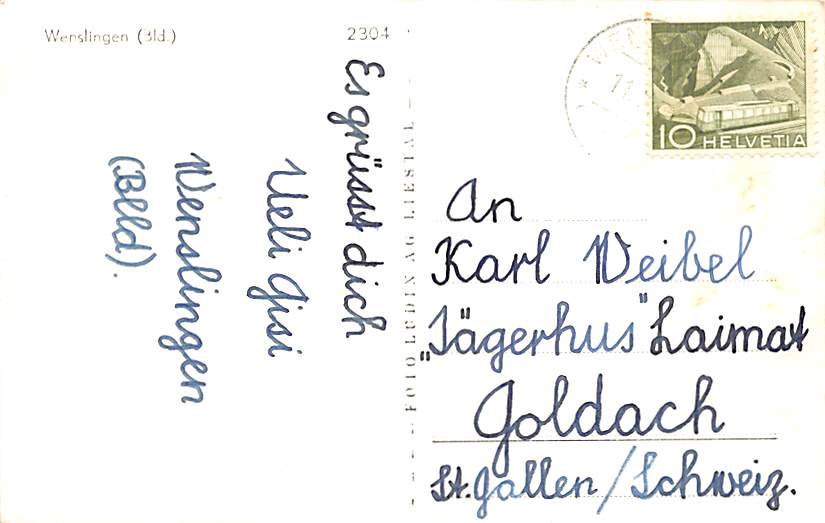 Wenslingen (Bld.)
2304
Es grüsst dich
Ueli Gisi
Wenslingen
(Blld).
FOTO LÜDIN AG LIESTAL
10 HELVETIA
An
Karl Weibel
„Jägerhus" Laimat
Goldach
St. Gallen / Schweiz.